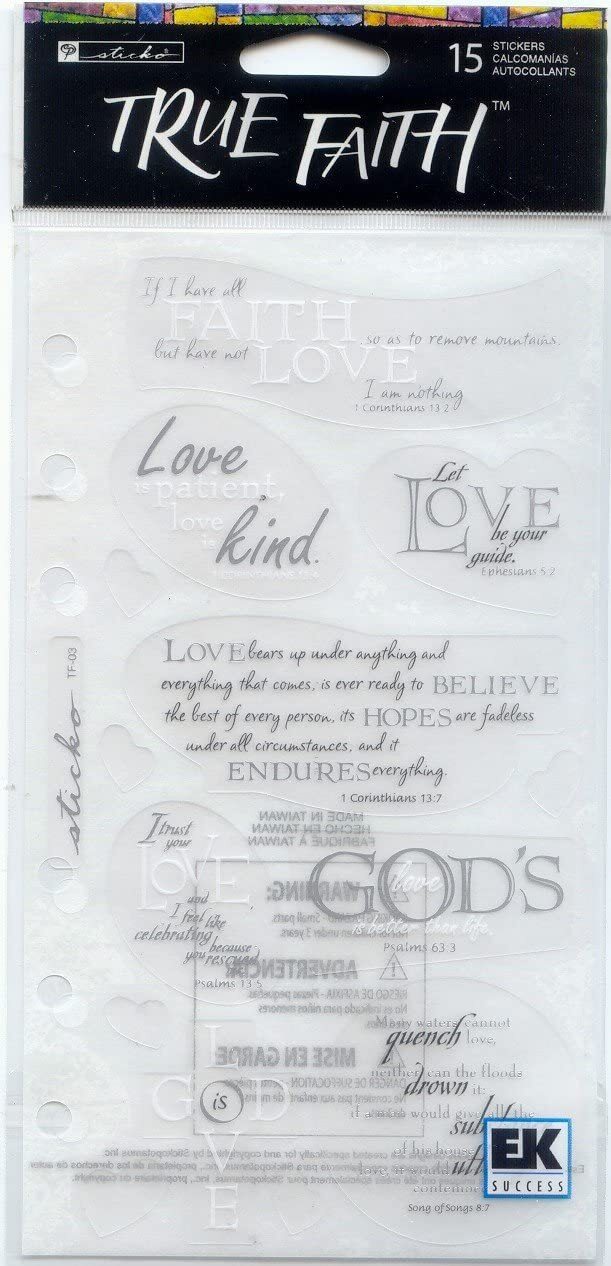 sticko
15 STICKERS
CALCOMANÍAS
AUTOCOLLANTS
TRUE FAITH™
If I have all
FAITH so as to remove mountains.
but have not LOVE
I am nothing
1 Corinthians 13:2
Love
is patient,
love
is
kind.
Let
LOVE
be your
guide.
Ephesians 5:2
LOVE bears up under anything and
everything that comes, is ever ready to BELIEVE
the best of every person, its HOPES are fadeless
under all circumstances, and it
ENDURES everything.
1 Corinthians 13:7
TF-03
sticko
MADE IN TAIWAN
HECHO EN TAIWAN
FABRIQUÉ À TAIWAN
I trust
your
LOVE
and
I feel like
celebrating
because
you rescued
Psalms 13:5
love
GOD'S
is better than life.
Psalms 63:3
WARNING:
Small parts
under 3 years
ADVERTENCIA
RIESGO DE ASFIXIA - Piezas pequeñas
No es indicado para niños menores
MISE EN GARDE
DANGER DE SUFFOCATION
Ne convient pas aux enfant de moins
GOD
is
LOVE
Many waters cannot
quench love,
neither can the floods
drown it:
if a would give all the
of his house
love, it would
Song of Songs 8:7
created specifically for and copyrighted by Stickopotamus Inc
para Stickopotamus, Inc., propietario de los derechos de autor
spécialement pour Stickopotamus, Inc., propriétaire du copyright.
EK
SUCCESS